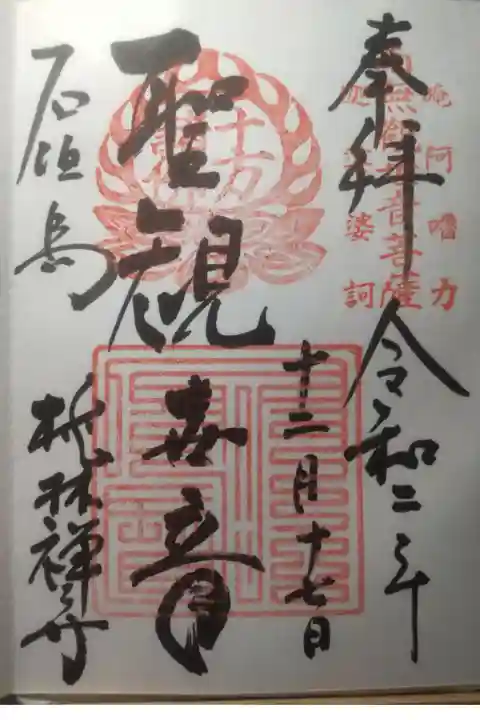 奉拝
令和二年
十二月十七日
聖観世音
石垣島
桃林禅寺
南無観世音菩薩
唵阿嚕力
迦娑婆訶
十方
諸佛